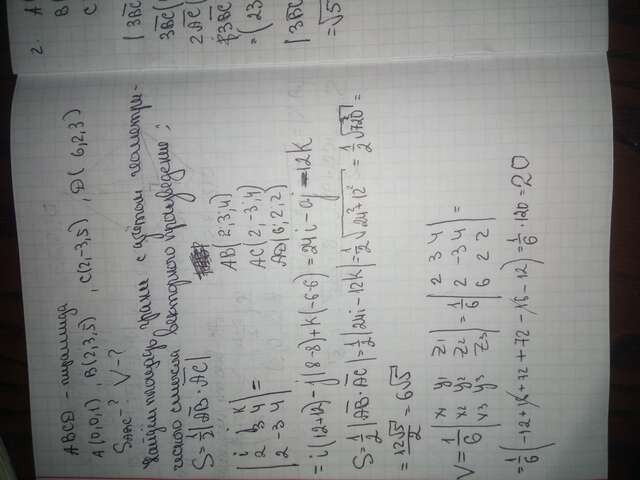 ABCD - пирамида
A(0,0,1), B(2,3,5), C(2,-3,5), D(6,2,3)
SΔABC-? V-?
Найдем площадь грани с учётом геометри-
ческого смысла векторного произведения;
S=1/2|AB·AC|
AB(2,3,4)
AC(2,-3,4)
AD(6,2,2)
|i j k|
|2 3 4|
|2 -3 4|=
=i(12+12)-j(8-8)+k(-6-6)=24i-0j-12k
S=1/2|AB·AC|=1/2|24i-12k|=1/2√24²+12²=1/2√720=
=12√5/2=6√5
V=1/6|x1 y1 z1|
|x2 y2 z2|
|x3 y3 z3|=1/6|2 3 4|
|2 -3 4|
|6 2 2|=
=1/6(-12+16+72+72-16-12)=1/6·120=20
2.
|3BC
3BC(
2AC(
=(23
|3BC
=√5